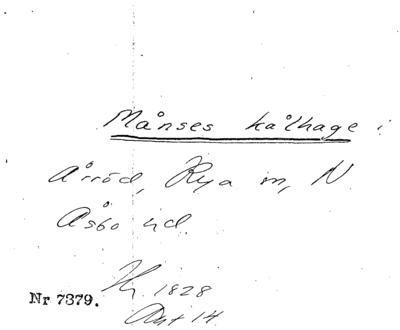 Månses kålhage i
Årröd, Rya sn, N.
Åsbo hd.
Hy. 1828
Nr 7379.
Akt 14